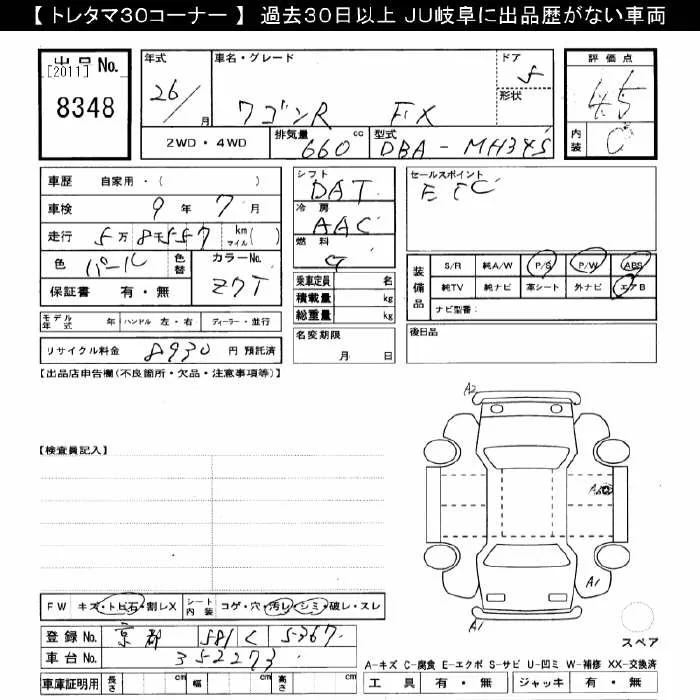 【 トレタマ30コーナー 】 過去30日以上 JU岐阜に出品歴がない車両
出品 No.
[2011]
8348
年式
26/
月
車名・グレード
ワゴンR FX
ドア
5
形状
評価点
4.5
内装
C
2WD・4WD
排気量
660 cc
型式
DBA-MH34S
車歴 自家用・( )
車検 9年 7月
走行 5万 8千557 km マイル( )
色 パール
色替
カラーNo.
Z7T
保証書 有・無
シフト
DAT
冷房
AAC
燃料
G
セールスポイント
ETC
乗車定員 名
積載量 kg
総重量 kg
装備品
S/R 純A/W P/S P/W ABS
純TV 純ナビ 革シート 外ナビ エアB
ナビ型番:
モデル年式 年 ハンドル 左・右 ディーラー・並行
名変期限
月 日
後日品
リサイクル料金 8930 円 預託済
【出品店申告欄(不良箇所・欠品・注意事項等)】
【検査員記入】
A2
A1
A1
FW キズ・トビ石・割レX
シート内装 コゲ・穴・汚レ・シミ・破レ・スレ
登録 No. 京都 581 く 5367
車台 No. 352273
スペア
A-キズ C-腐食 E-エクボ S-サビ U-凹ミ W-補修 XX-交換済
車庫証明用 長さ cm 幅 cm 高さ cm
工具 有・無 ジャッキ 有・無